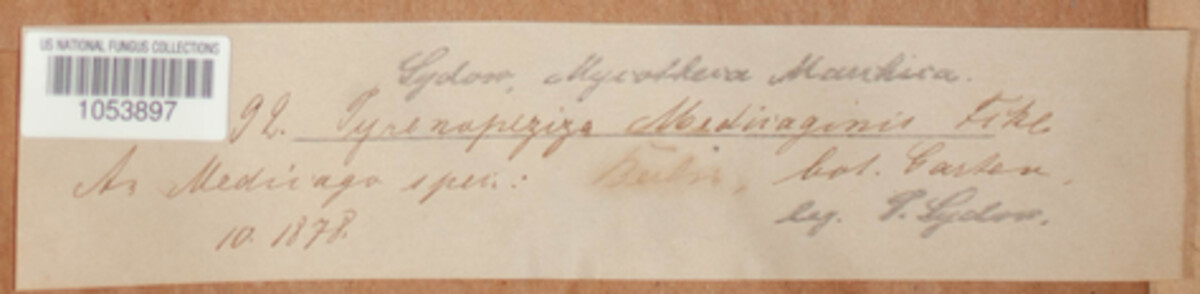 US NATIONAL FUNGUS COLLECTIONS
1053897
Sydow, Mycotheca Marchica.
92. Pyrenopeziza Medicaginis Fckl
An Medicago spec.: Berlin, bot. Garten,
10. 1878. leg. P. Sydow.